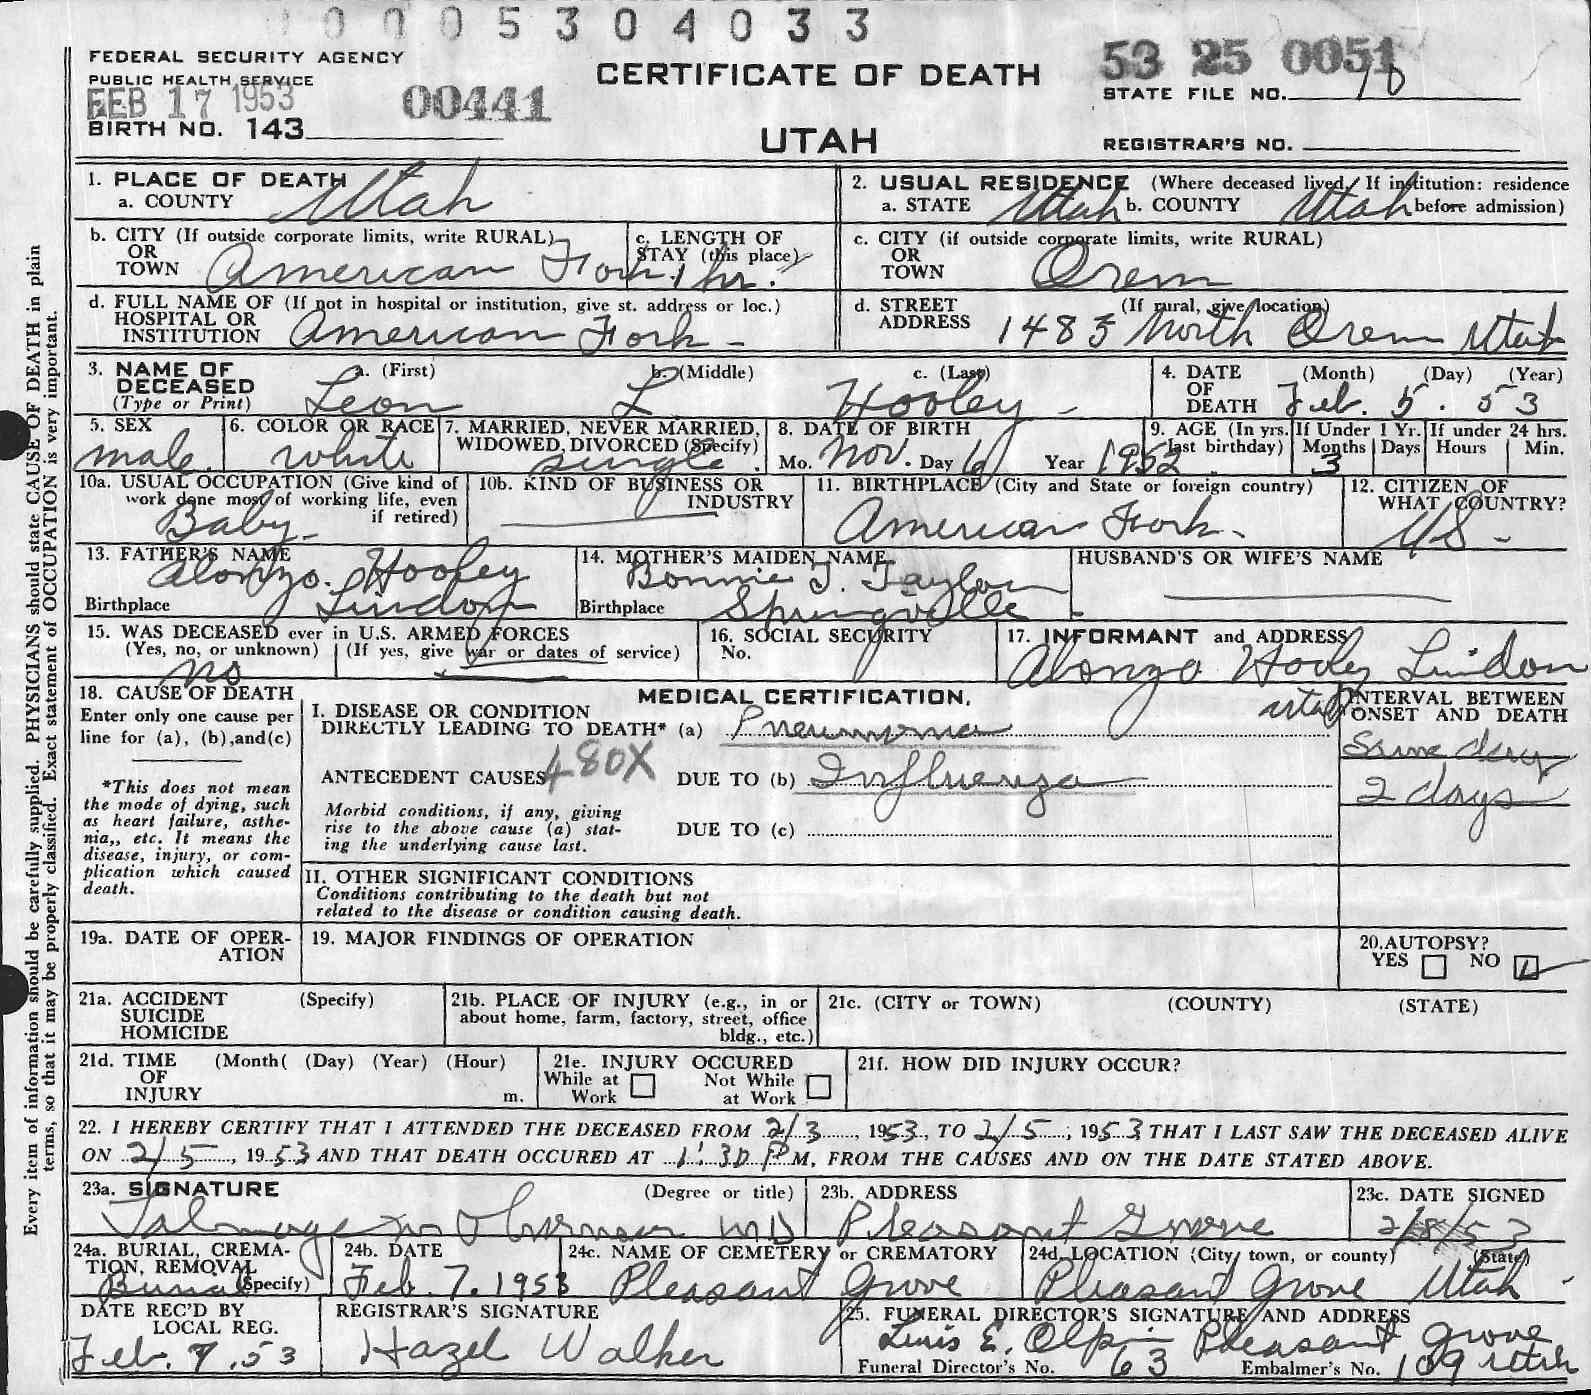 0005304033
FEDERAL SECURITY AGENCY
PUBLIC HEALTH SERVICE
FEB 17 1953
00441
BIRTH NO. 143
CERTIFICATE OF DEATH
UTAH
53 25 0051
STATE FILE NO. 10
REGISTRAR'S NO.
Every item of information should be carefully supplied. PHYSICIANS should state CAUSE OF DEATH in plain
terms, so that it may be properly classified. Exact statement of OCCUPATION is very important.
1. PLACE OF DEATH
a. COUNTY Utah
2. USUAL RESIDENCE (Where deceased lived. If institution: residence
a. STATE Utah b. COUNTY Utah before admission)
b. CITY (If outside corporate limits, write RURAL)
OR
TOWN American Fork
c. LENGTH OF
STAY (this place) 1 hr.
c. CITY (if outside corporate limits, write RURAL)
OR
TOWN Orem
d. FULL NAME OF (If not in hospital or institution, give st. address or loc.)
HOSPITAL OR
INSTITUTION American Fork -
d. STREET (If rural, give location)
ADDRESS 1483 North Orem Utah
3. NAME OF
DECEASED
(Type or Print)
a. (First) b. (Middle) c. (Last)
Leon L Hooley -
4. DATE
OF
DEATH
(Month) (Day) (Year)
Feb. 5. 53
5. SEX
male.
6. COLOR OR RACE
white
7. MARRIED, NEVER MARRIED,
WIDOWED, DIVORCED (Specify)
single.
8. DATE OF BIRTH
Mo. Nov. Day 6 Year 1952
9. AGE (In yrs.
last birthday)
If Under 1 Yr.
Months Days
3
If under 24 hrs.
Hours Min.
10a. USUAL OCCUPATION (Give kind of
work done most of working life, even
if retired)
Baby
10b. KIND OF BUSINESS OR
INDUSTRY
11. BIRTHPLACE (City and State or foreign country)
American Fork.
12. CITIZEN OF
WHAT COUNTRY?
US -
13. FATHER'S NAME
Alonzo. Hooley
Birthplace Lindon
14. MOTHER'S MAIDEN NAME
Bonnie J. Taylor
Birthplace Springville
HUSBAND'S OR WIFE'S NAME
15. WAS DECEASED ever in U.S. ARMED FORCES
(Yes, no, or unknown) (If yes, give war or dates of service)
no
16. SOCIAL SECURITY
No.
17. INFORMANT and ADDRESS
Alonzo Hooley Lindon
Utah
18. CAUSE OF DEATH
Enter only one cause per
line for (a), (b),and(c)
*This does not mean
the mode of dying, such
as heart failure, asthe-
nia,, etc. It means the
disease, injury, or com-
plication which caused
death.
MEDICAL CERTIFICATION.
I. DISEASE OR CONDITION
DIRECTLY LEADING TO DEATH* (a) Pneumonia
ANTECEDENT CAUSES 480X DUE TO (b) Influenza
Morbid conditions, if any, giving
rise to the above cause (a) stat-
ing the underlying cause last.
DUE TO (c)
INTERVAL BETWEEN
ONSET AND DEATH
Same day
2 days
II. OTHER SIGNIFICANT CONDITIONS
Conditions contributing to the death but not
related to the disease or condition causing death.
19a. DATE OF OPER-
ATION
19. MAJOR FINDINGS OF OPERATION
20.AUTOPSY?
YES NO
21a. ACCIDENT (Specify)
SUICIDE
HOMICIDE
21b. PLACE OF INJURY (e.g., in or
about home, farm, factory, street, office
bldg., etc.)
21c. (CITY or TOWN) (COUNTY) (STATE)
21d. TIME (Month( (Day) (Year) (Hour)
OF
INJURY m.
21e. INJURY OCCURED
While at Not While
Work at Work
21f. HOW DID INJURY OCCUR?
22. I HEREBY CERTIFY THAT I ATTENDED THE DECEASED FROM 2/3, 1953, TO 2/5, 1953, THAT I LAST SAW THE DECEASED ALIVE
ON 2/5, 1953 AND THAT DEATH OCCURED AT 1:30 P M, FROM THE CAUSES AND ON THE DATE STATED ABOVE.
23a. SIGNATURE (Degree or title)
Talmage MD
23b. ADDRESS
Pleasant Grove
23c. DATE SIGNED
2/8/53
24a. BURIAL, CREMA-
TION, REMOVAL
Burial (Specify)
24b. DATE
Feb. 7. 1953
24c. NAME OF CEMETERY or CREMATORY
Pleasant Grove
24d. LOCATION (City, town, or county) (State)
Pleasant Grove Utah
DATE REC'D BY
LOCAL REG.
Feb. 7. 53
REGISTRAR'S SIGNATURE
Hazel Walker
25. FUNERAL DIRECTOR'S SIGNATURE AND ADDRESS
E. Olpin Pleasant Grove
Funeral Director's No. 63 Embalmer's No. 109 Utah